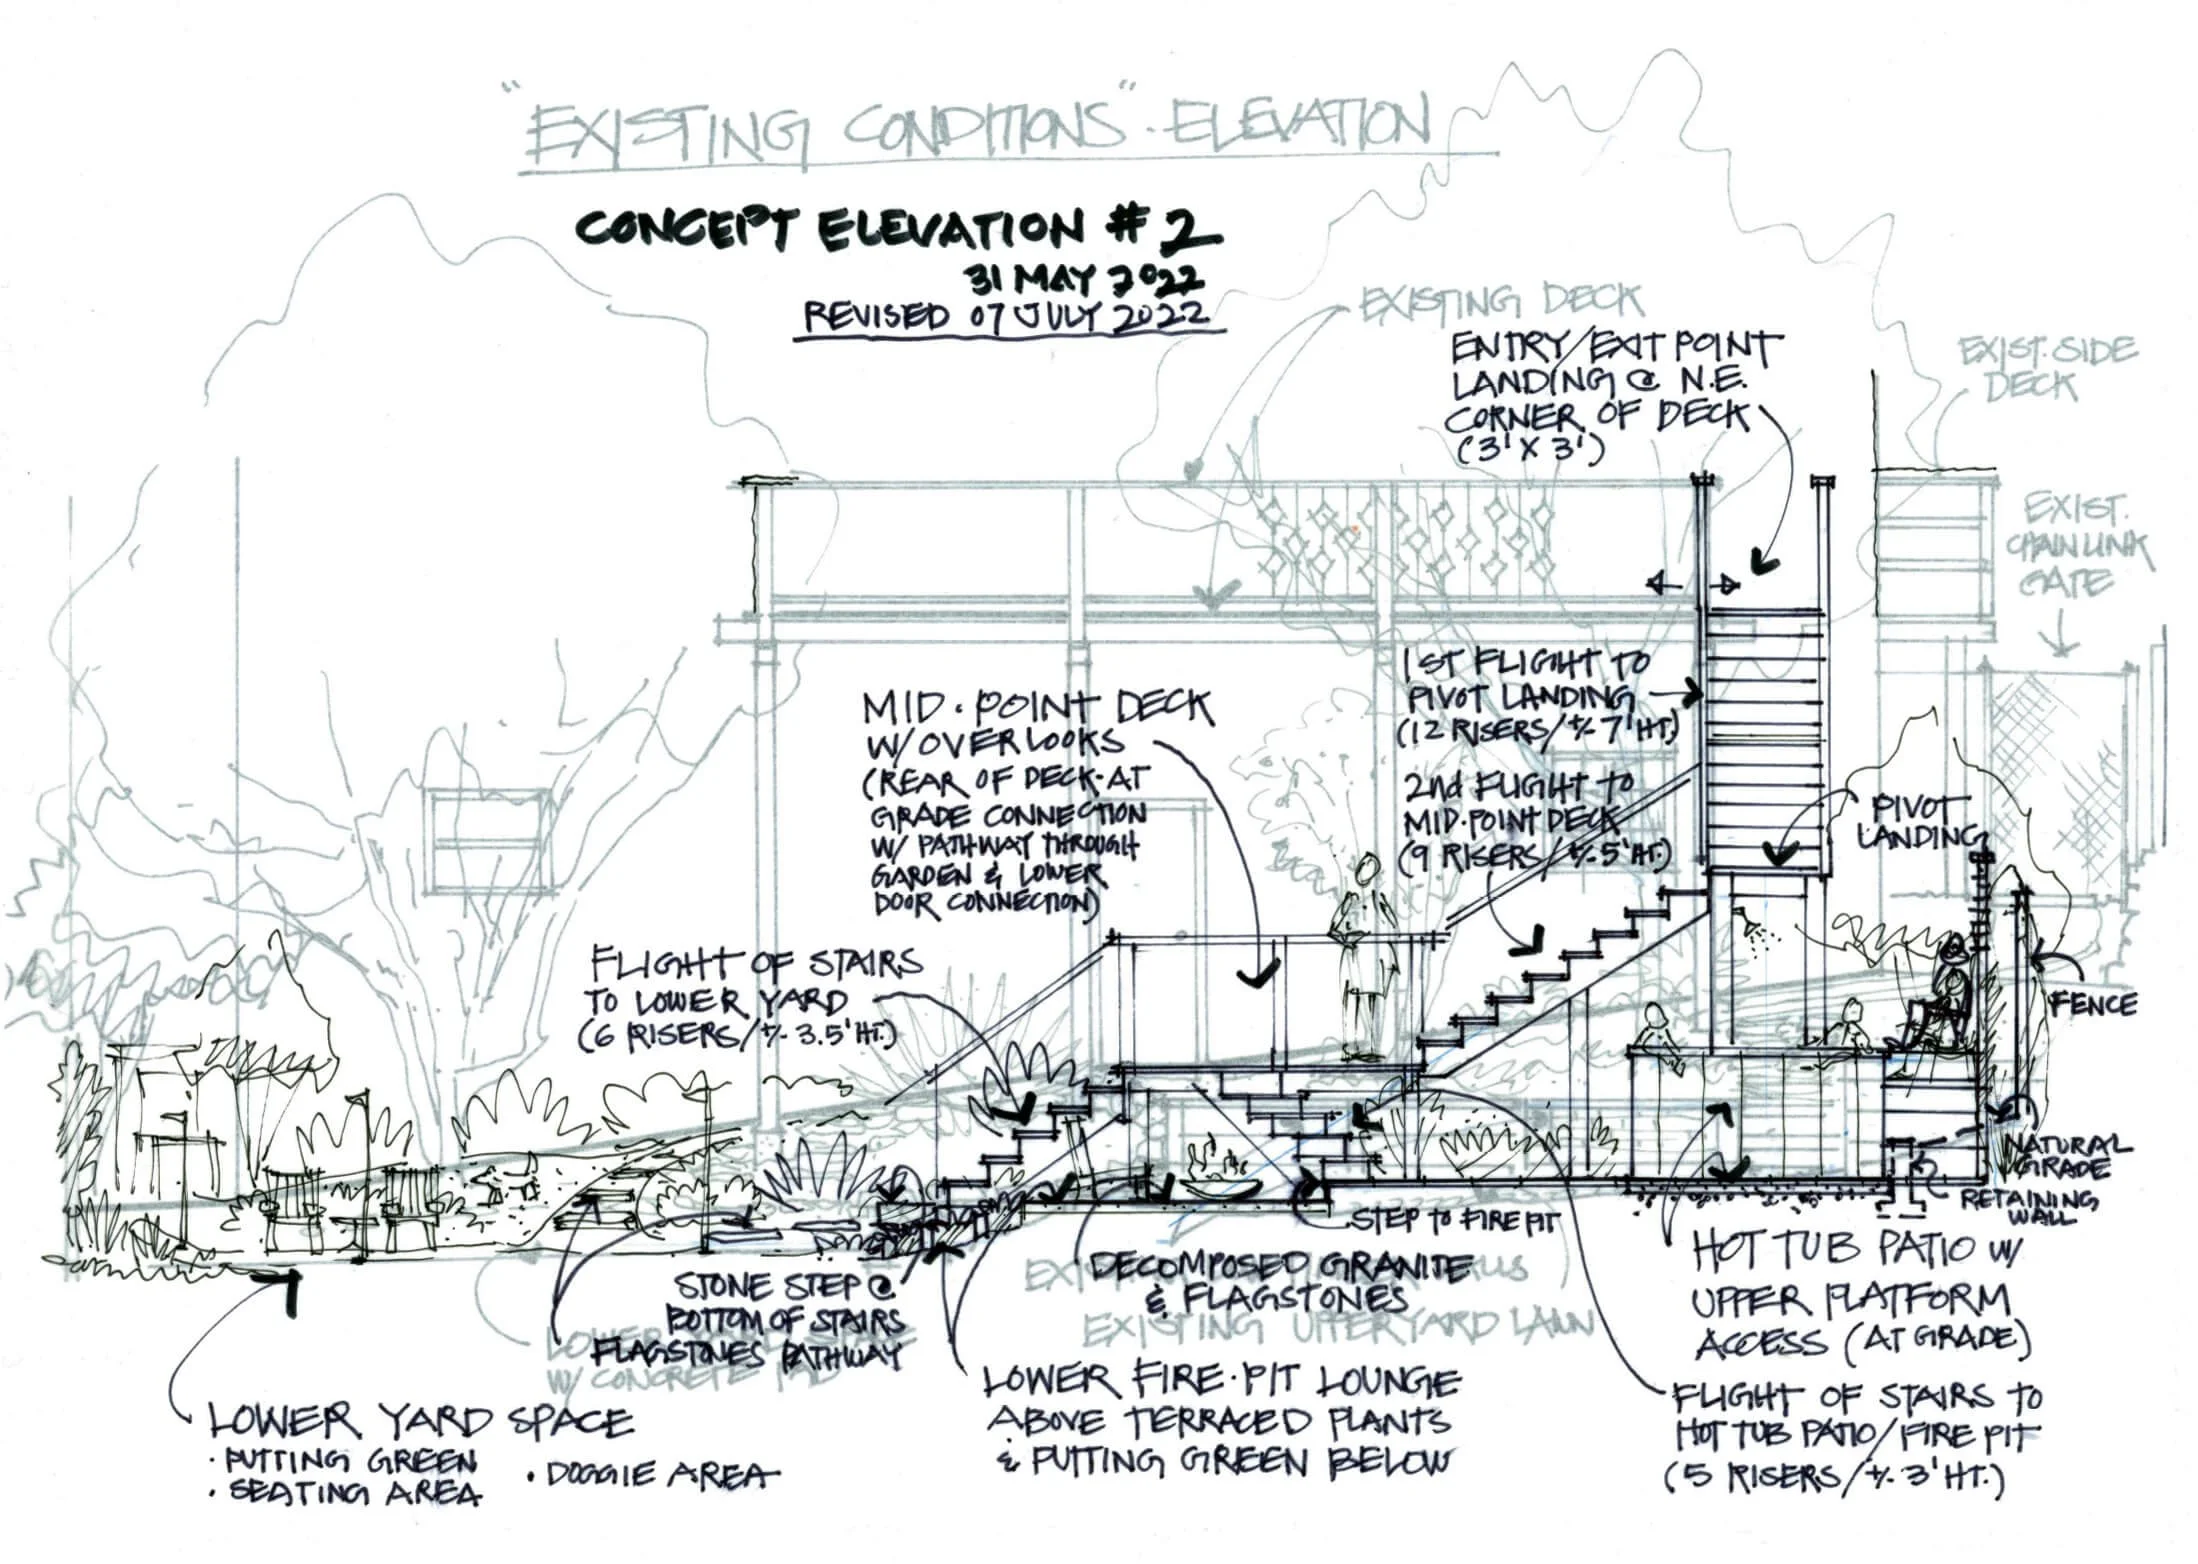 "EXISTING CONDITIONS" · ELEVATION
CONCEPT ELEVATION #2
31 MAY 2022
REVISED 07 JULY 2022
EXISTING DECK
ENTRY/EXIT POINT
LANDING @ N.E.
CORNER OF DECK
(3' X 3')
EXIST. SIDE
DECK
EXIST.
CHAIN LINK
GATE
1ST FLIGHT TO
PIVOT LANDING
(12 RISERS/+/- 7' HT.)
2nd FLIGHT TO
MID·POINT DECK
(9 RISERS/+/- 5' HT.)
PIVOT
LANDING
MID·POINT DECK
W/ OVERLOOKS
(REAR OF DECK·AT
GRADE CONNECTION
W/ PATHWAY THROUGH
GARDEN & LOWER
DOOR CONNECTION)
FLIGHT OF STAIRS
TO LOWER YARD
(6 RISERS/+/- 3.5' HT.)
FENCE
NATURAL
GRADE
RETAINING
WALL
STEP TO FIRE PIT
DECOMPOSED GRANITE
& FLAGSTONES
EXISTING UPPER YARD LAWN
STONE STEP @
BOTTOM OF STAIRS
FLAGSTONES PATHWAY
LOWER
W/ CONCRETE PAD
HOT TUB PATIO W/
UPPER PLATFORM
ACCESS (AT GRADE)
LOWER FIRE·PIT LOUNGE
ABOVE TERRACED PLANTS
& PUTTING GREEN BELOW
FLIGHT OF STAIRS TO
HOT TUB PATIO/FIRE PIT
(5 RISERS/+/- 3' HT.)
LOWER YARD SPACE
· PUTTING GREEN
· SEATING AREA
· DOGGIE AREA